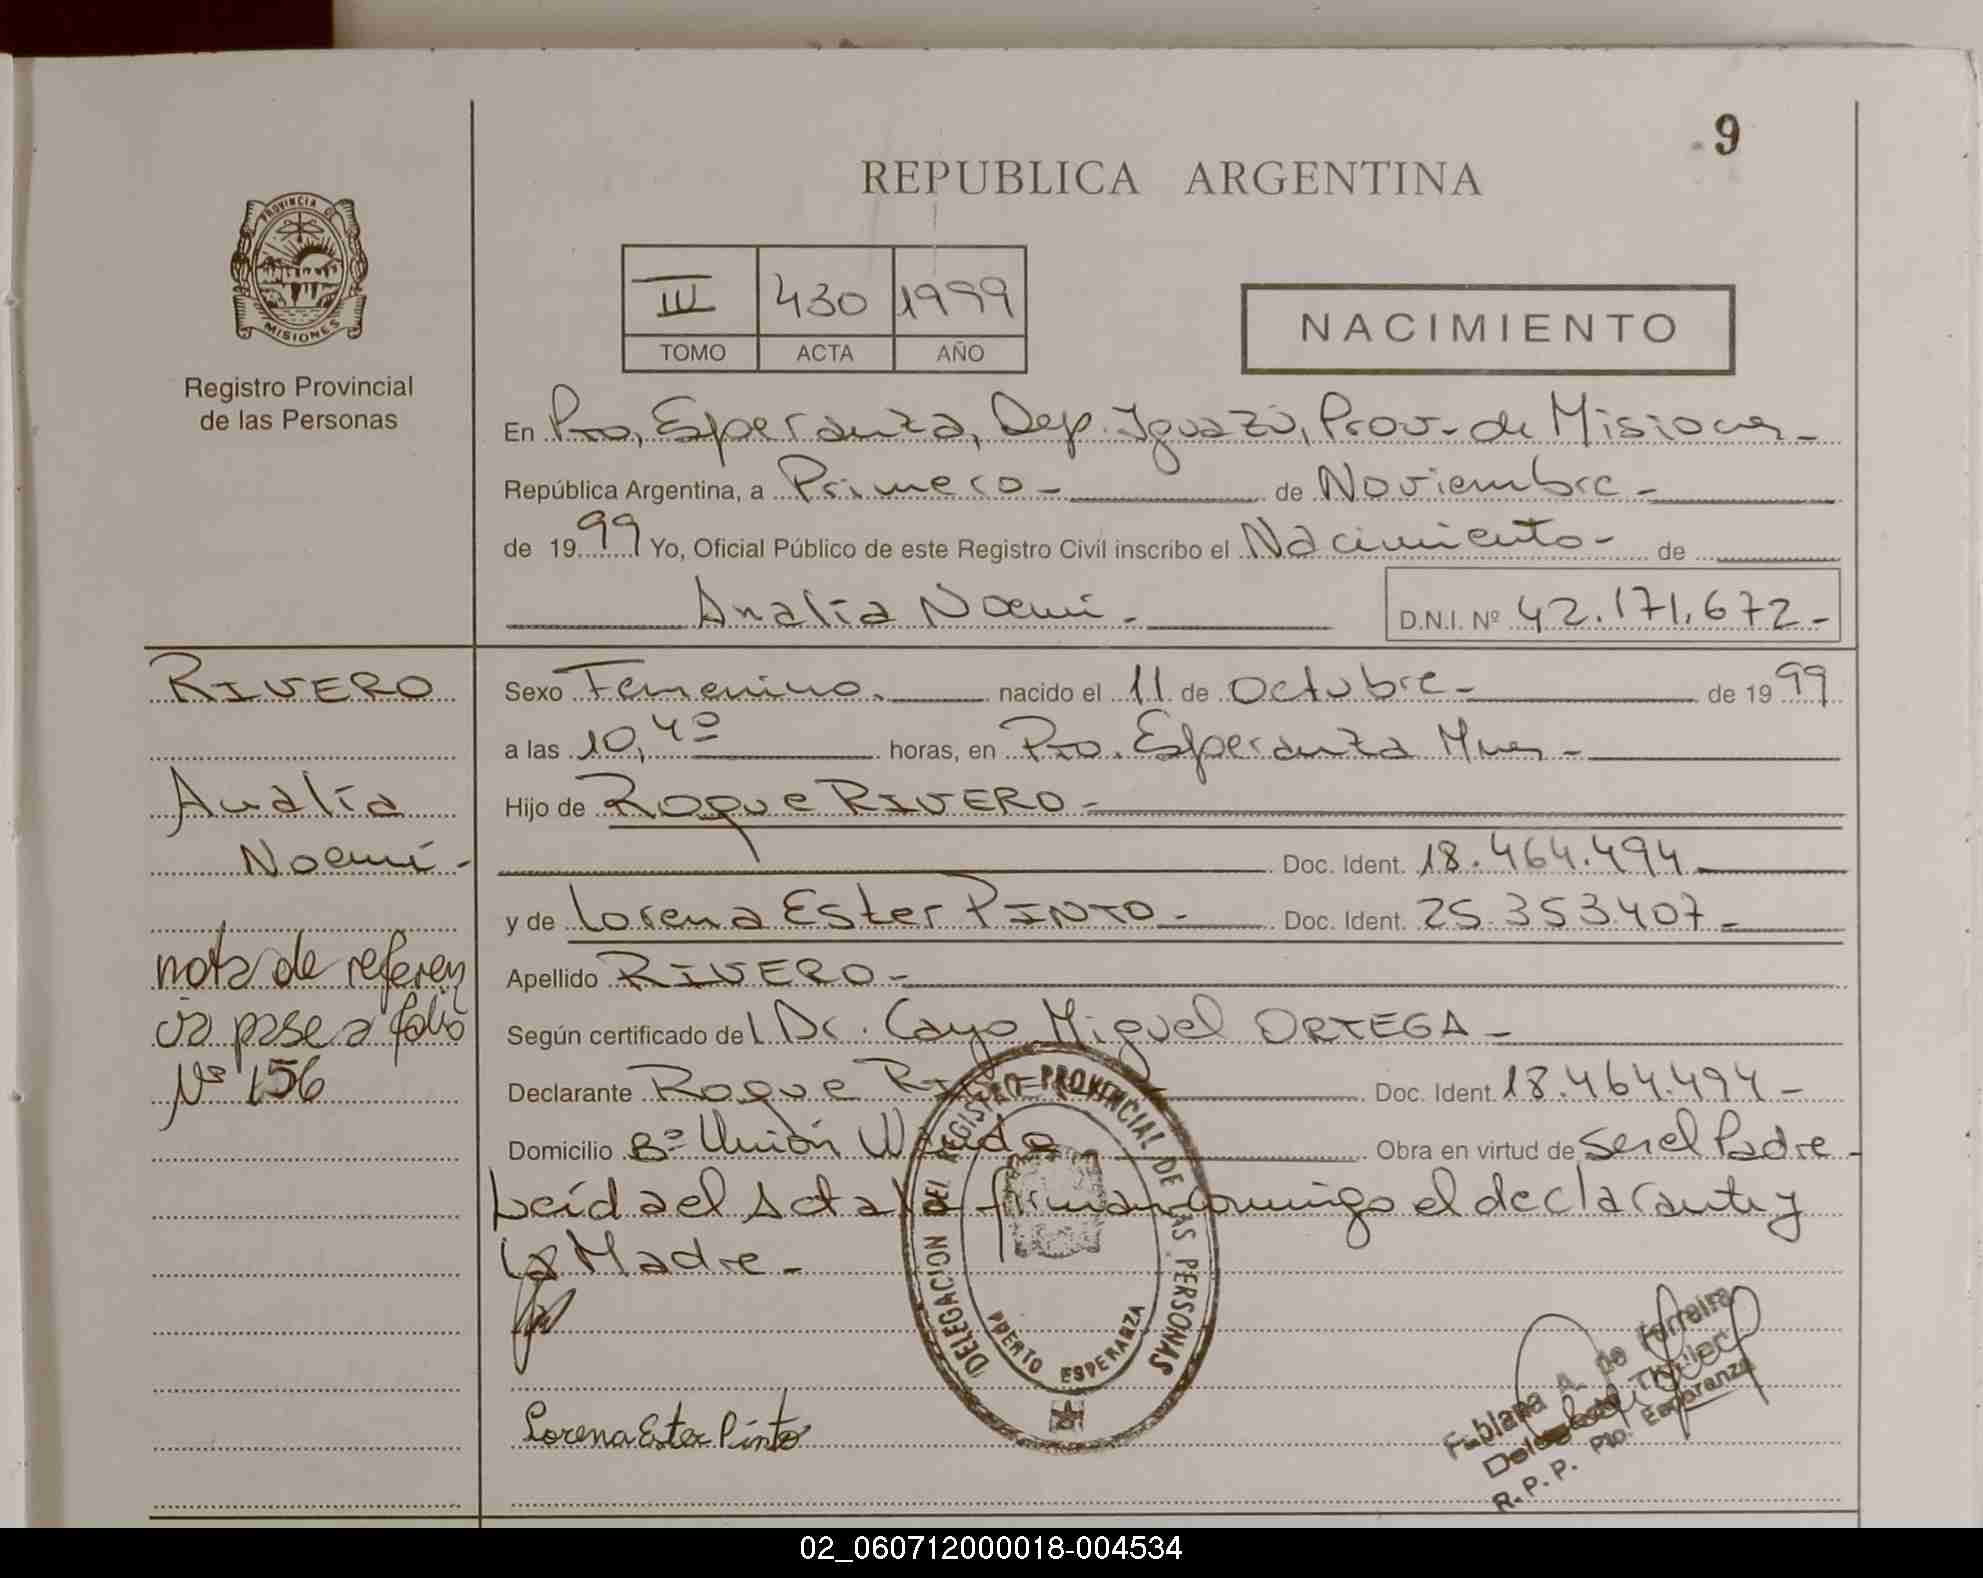 9
REPUBLICA ARGENTINA
PROVINCIA DE
MISIONES
Registro Provincial
de las Personas
III 430 1999
TOMO ACTA AÑO
NACIMIENTO
En Pto. Esperanza, Dep. Iguazú, Prov. de Misiones-
República Argentina, a Primero- de Noviembre-
de 1999 Yo, Oficial Público de este Registro Civil inscribo el Nacimiento- de
Analía Noemi- D.N.I. Nº 42.171.672-
RIVERO
Analía
Noemí-
nota de referen
cia pase a folio
Nº 156
Sexo Femenino- nacido el 11 de Octubre- de 1999
a las 10,40 horas, en Pto. Esperanza Mnes-
Hijo de Roque RIVERO-
Doc. Ident. 18.464.494
y de Lorena Ester PINTO- Doc. Ident. 25.353.407-
Apellido RIVERO-
Según certificado del Dr. Cayo Miguel ORTEGA-
Declarante Roque Doc. Ident. 18.464.494-
Domicilio Bº Unión Wanda Obra en virtud de Ser el Padre-
Leída el Acta la firman conmigo el declarante y
la Madre-
DELEGACION DEL REGISTRO PROVINCIAL DE LAS PERSONAS
PUERTO ESPERANZA
Lorena Ester Pinto
Fabiana A. de Ferreira
Delegada Titular
R.P.P. Pto. Esperanza
02_060712000018-004534